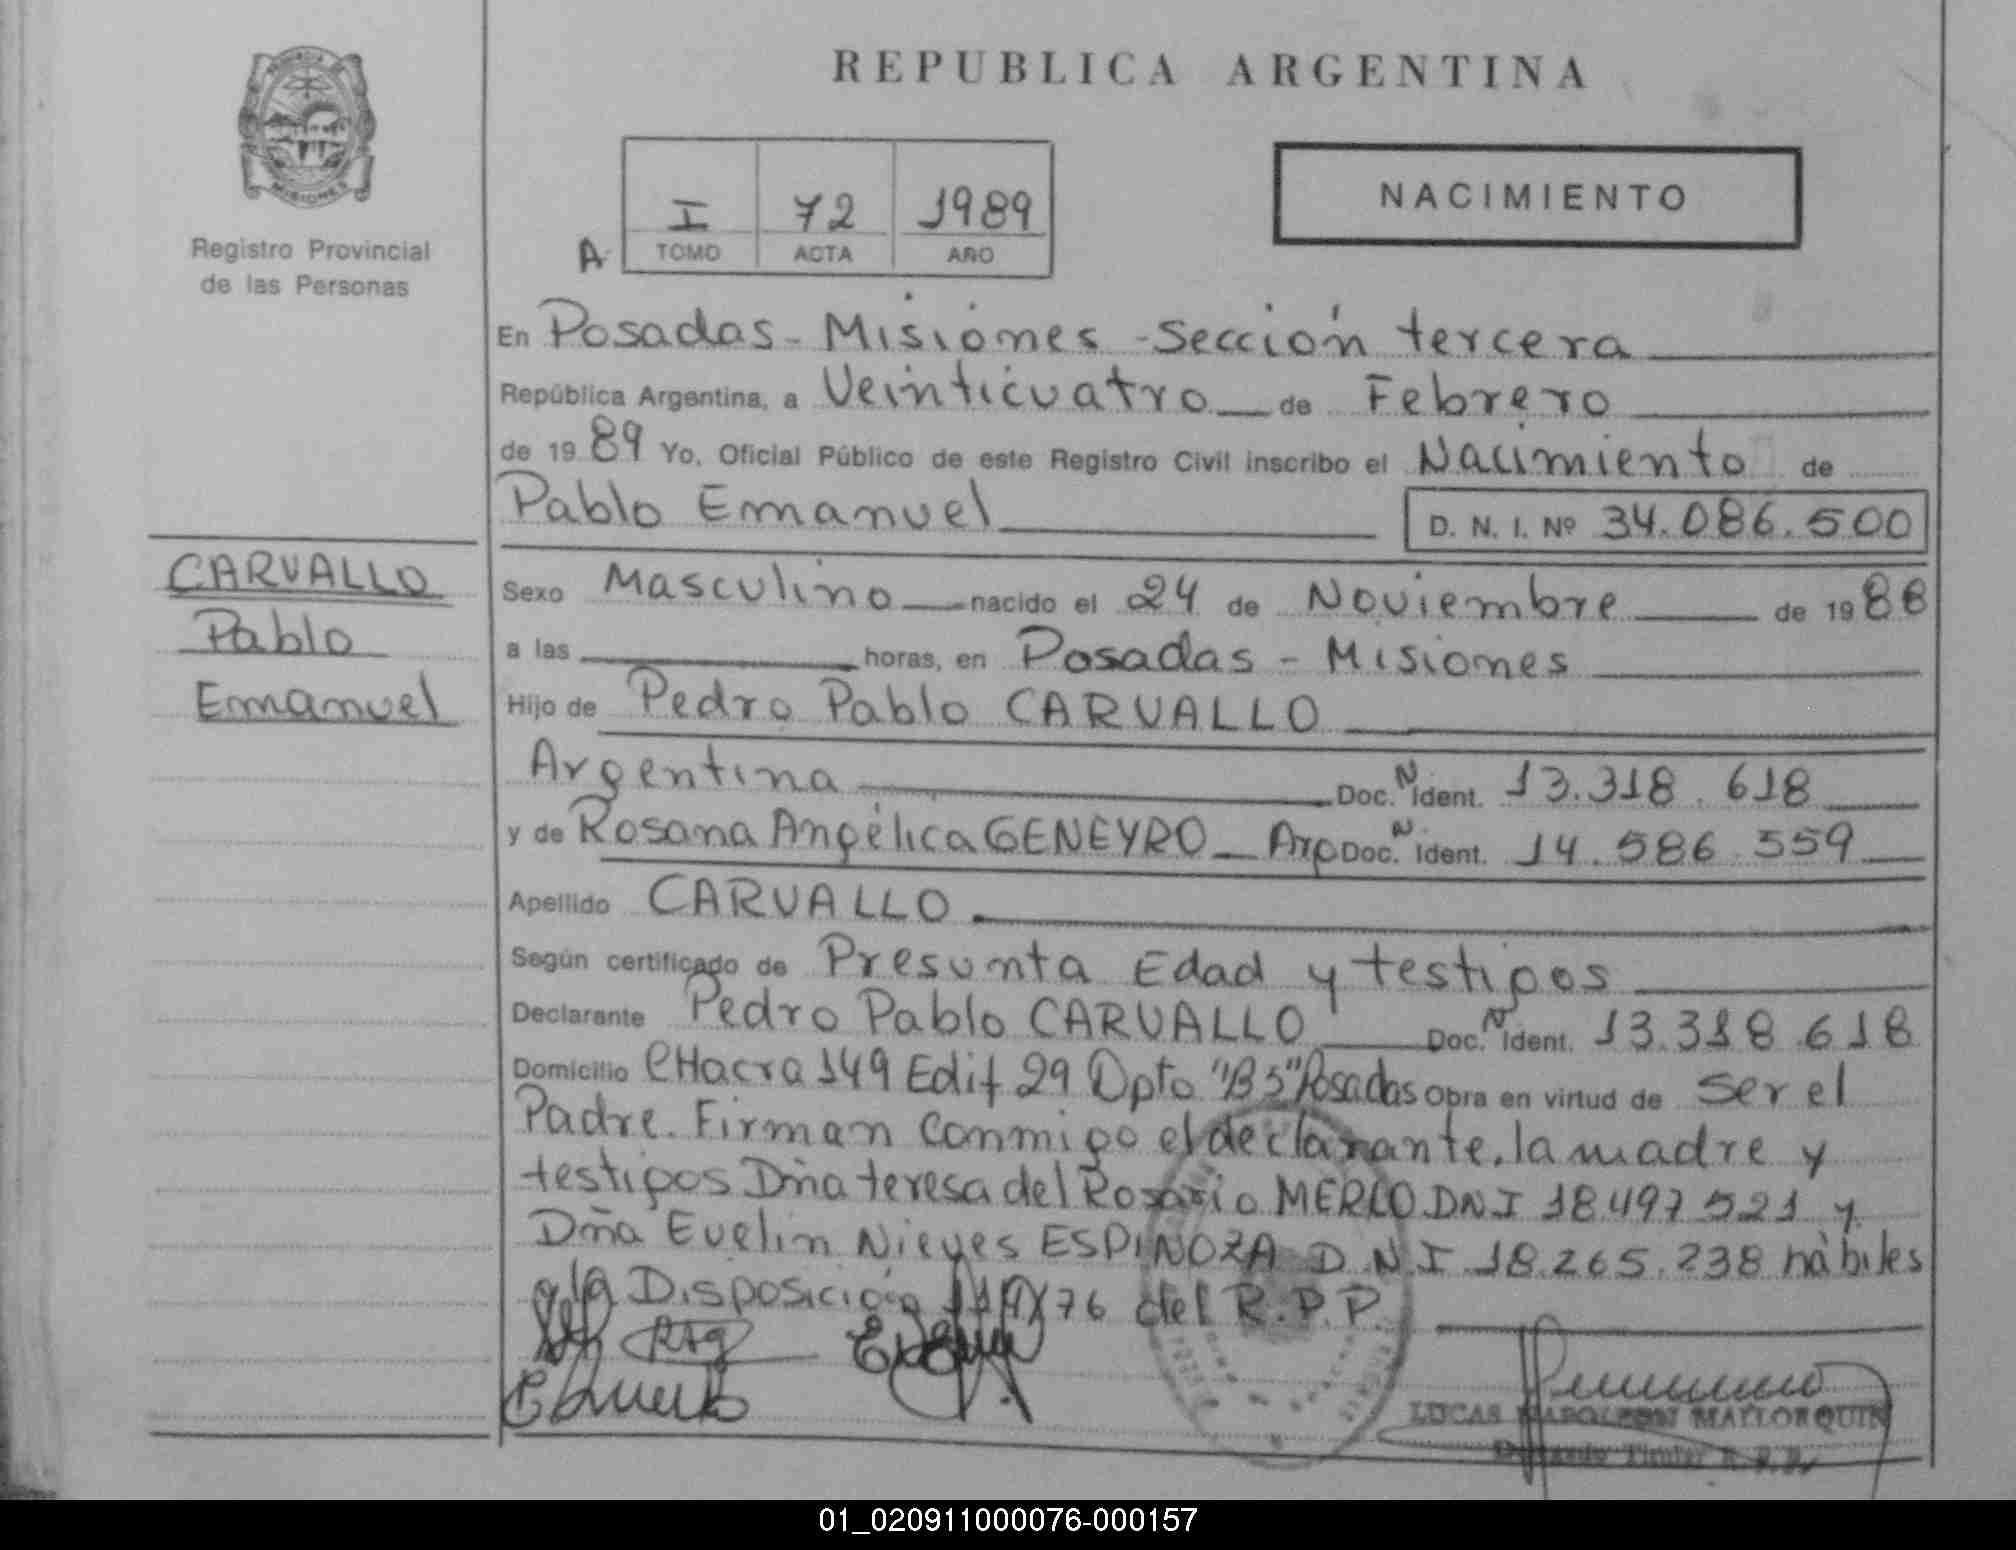 REPUBLICA ARGENTINA
MISIONES
Registro Provincial
de las Personas
A
I 72 1989
TOMO ACTA AÑO
NACIMIENTO
En Posadas - Misiones - Sección tercera
República Argentina, a Veinticuatro de Febrero
de 1989 Yo, Oficial Público de este Registro Civil inscribo el Nacimiento de
Pablo Emanuel D. N. I. Nº 34.086.500
CARVALLO
Pablo
Emanuel
Sexo Masculino nacido el 24 de Noviembre de 1988
a las horas, en Posadas - Misiones
Hijo de Pedro Pablo CARVALLO
Argentina Doc. N Ident. 13.318.618
y de Rosana Angélica GENEYRO Arg Doc. N Ident. 14.586.559
Apellido CARVALLO
Según certificado de Presunta Edad y testigos
Declarante Pedro Pablo CARVALLO Doc. N Ident. 13.318.618
Domicilio CHacra 149 Edif 29 Dpto "B 5" Posadas Obra en virtud de ser el
Padre. Firman conmigo el declarante, la madre y
testigos Dña teresa del Rosario MERLO DNI 18.497.521 y
Dña Evelin Nieves ESPINOZA D.N.I 18.265.238 hábiles
a la Disposición 76 del R.P.P.
LUCAS NAPOLEON MALLORQUIN
Titular
01_020911000076-000157